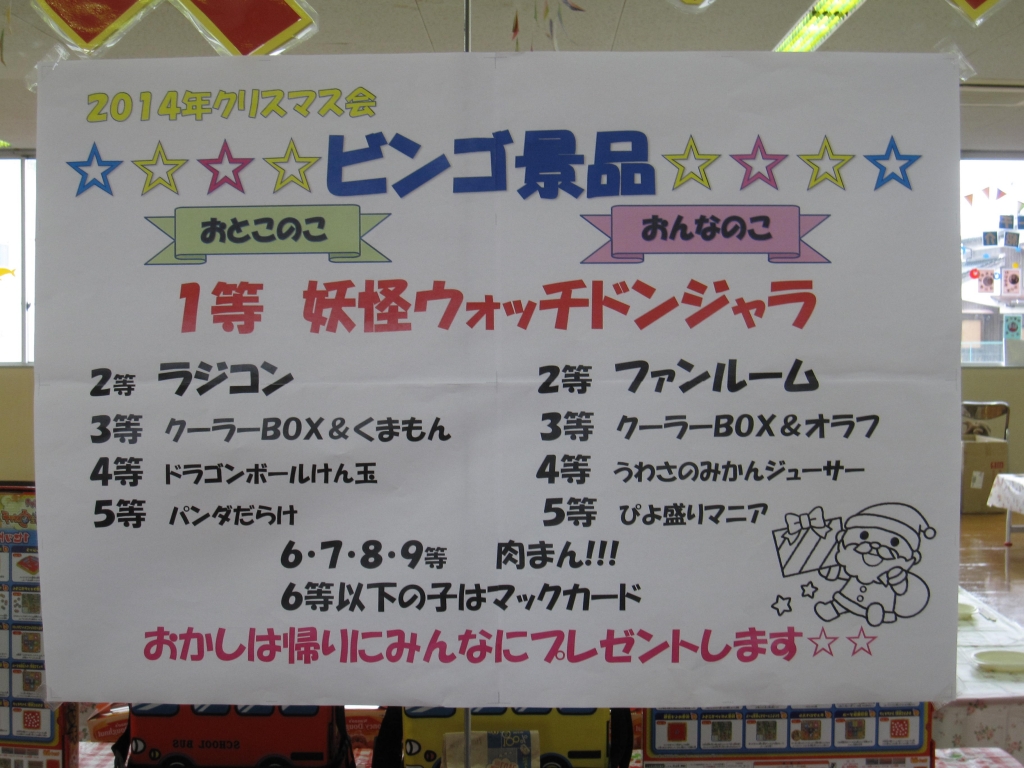 2014年クリスマス会
☆☆☆☆ビンゴ景品☆☆☆☆
おとこのこ おんなのこ
1等 妖怪ウォッチドンジャラ
2等 ラジコン 2等 ファンルーム
3等 クーラーBOX&くまもん 3等 クーラーBOX&オラフ
4等 ドラゴンボールけん玉 4等 うわさのみかんジューサー
5等 パンダだらけ 5等 ぴよ盛りマニア
6・7・8・9等 肉まん!!!
6等以下の子はマックカード
おかしは帰りにみんなにプレゼントします☆☆
SCHOOL BUS